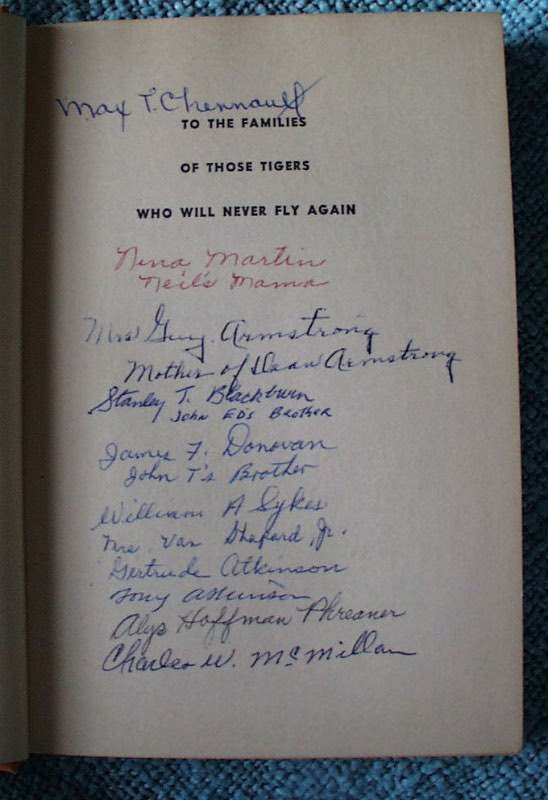 Max T. Chennault
TO THE FAMILIES
OF THOSE TIGERS
WHO WILL NEVER FLY AGAIN
Nena Martin
Neil's Mama
Mrs Guy Armstrong
Mother of Armstrong
Stanley T. Blackburn
John ED's Brother
James F. Donovan
John T's Brother
William A Sykes
Mrs. Van Shapard, Jr.
Gertrude Atkinson
Tony Atkinson
Alys Hoffman Phreaner
Charles W. McMillan